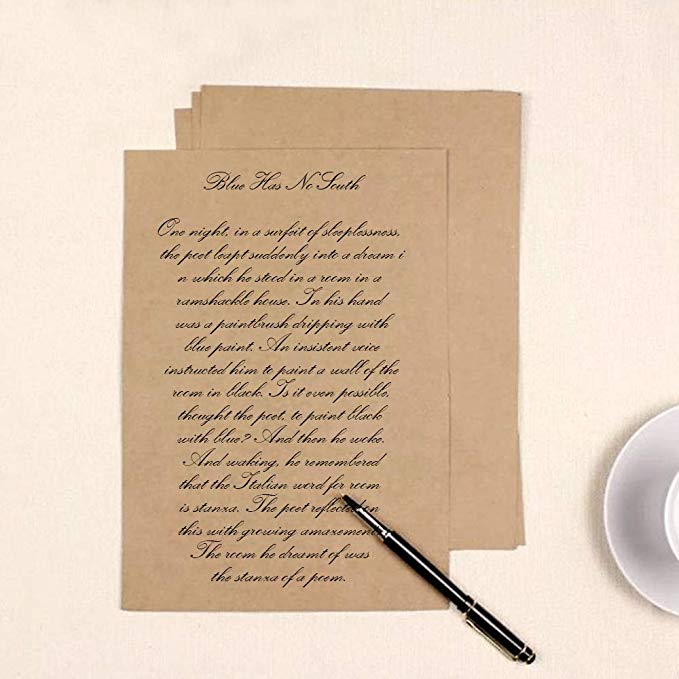 Blue Has No South
One night, in a surfeit of sleeplessness,
the poet leapt suddenly into a dream i
n which he stood in a room in a
ramshackle house. In his hand
was a paintbrush dripping with
blue paint. An insistent voice
instructed him to paint a wall of the
room in black. Is it even possible,
thought the poet, to paint black
with blue? And then he woke.
And waking, he remembered
that the Italian word for room
is stanza. The poet reflected on
this with growing amazement.
The room he dreamt of was
the stanza of a poem.